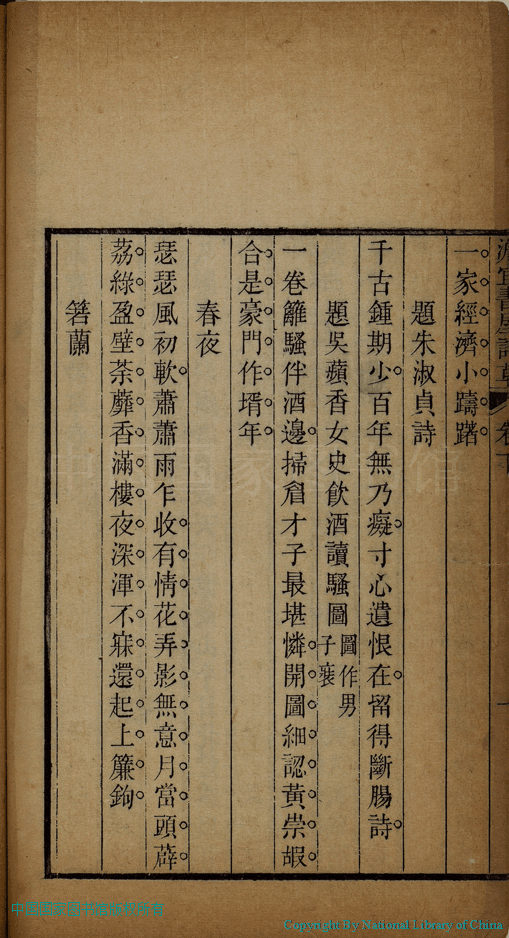 宜書屋詩草 卷下
一家經濟小躊躇
題朱淑貞詩
千古鍾期少百年無乃癡寸心遺恨在留得斷腸詩
題吳蘋香女史飲酒讀騷圖圖作男子裝
一卷離騷伴酒邊掃眉才子最堪憐開圖細認黃崇嘏
合是豪門作壻年
春夜
瑟瑟風初軟蕭蕭雨乍收有情花弄影無意月當頭薜
荔綠盈壁荼蘼香滿樓夜深渾不寐還起上簾鉤
箬蘭
Copyright By National Library of China